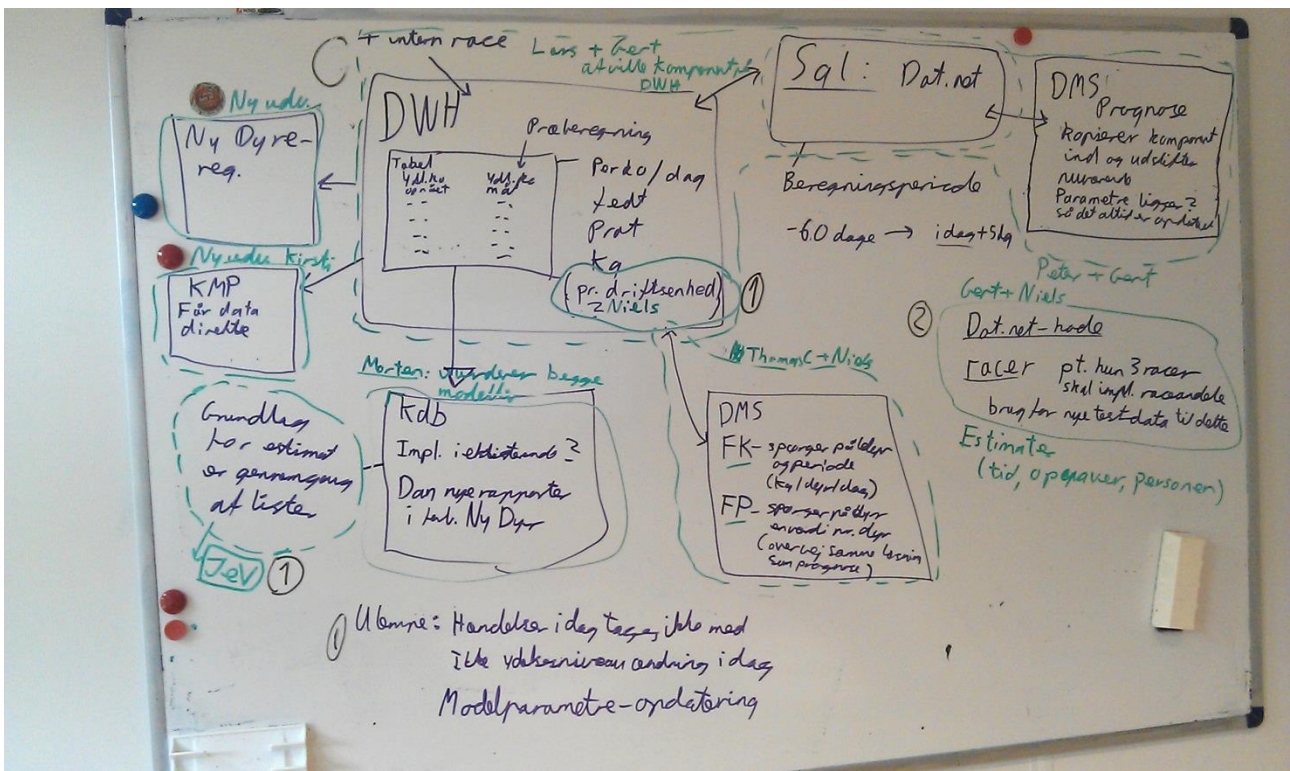 + intern race
Lars + Gert
afvikle komponent på
DWH
Ny udv.
Ny Dyre-
reg.
DWH
Præberegning
Tabel
Ydl.ko
Ydl.ko
mål
Per ko/dag
Fedt
Prot
Kg
(pr. driftsenhed)
? Niels
1
Sql: Dat.net
Beregningsperiode
-60 dage → idag+5
DMS
Prognose
Kopierer komponent
ind og udskifter
nuværende
Parametre ligger?
så det altid er opdateret
Peter + Gert
Ny udv. Kirsti
KMP
Får data
direkte
Gert + Niels
2
Dat.net-kode
racer pt. kun 3 racer
skal impl. raceandele
brug for nye testdata til dette
Estimater
(tid, opgaver, personer)
Morten: vurderer begge
modeller
Kdb
Impl. i eksisterende?
Dan nye rapporter
i forb. Ny Dyr
Grundlag
for estimat
er gennemgang
af lister
JeV
1
Thomas C + Niels
DMS
FK- spørger på dyr
og periode
(kg/dyr/dag)
FP- spørger på dyr
en værdi nr. dyr
(overvej samme løsning
som prognose)
1 Ulempe: Hændelser idag tages ikke med
Ikke ydelsesniveau ændring idag
Modelparametre-opdatering